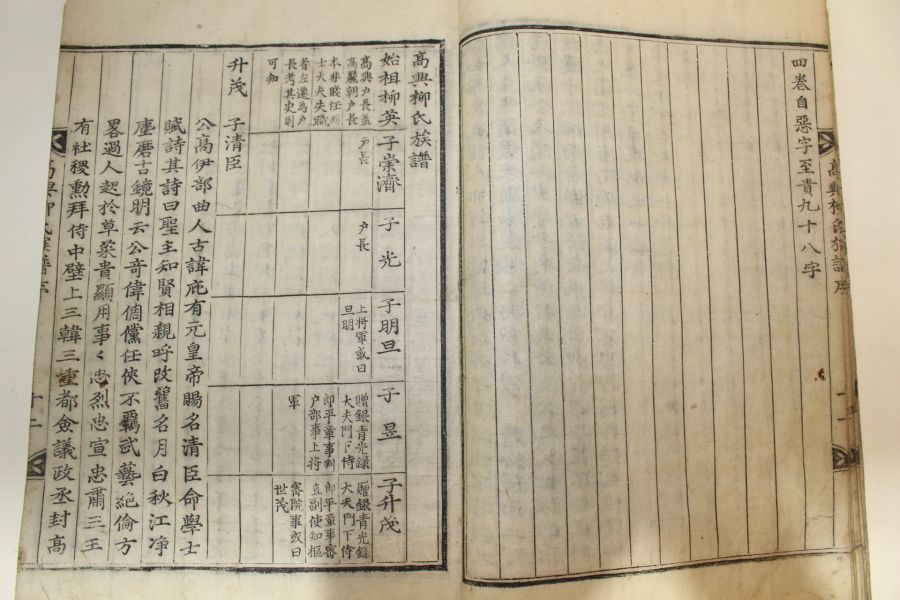 四卷自惡字至貴九十八字
高興柳氏族譜序
高興柳氏族譜
始祖柳英
高興戶長蓋
高麗朝戶長
本非賤任而
士大夫失職
者左遷爲戶
長考其史則
可知
子崇濟
戶長
子光
戶長
子明旦
上將軍或曰
旦明
子昱
贈銀青光錄
大夫門下侍
郎平章事判
戶部事上將
軍
子升茂
贈銀青光錄
大夫門下侍
郎平章事密
直副使知樞
密院事或曰
世茂
升茂
子清臣
公高伊部曲人古諱庇有元皇帝賜名清臣命學士
賦詩其詩曰聖主知賢相親呼改舊名月白秋江净
塵磨古鏡明云公奇偉倜儻任俠不羈武藝絶倫方
畧過人起於草萊貴顯用事〻忠烈忠宣忠肅三王
有社稷勳拜侍中壁上三韓三重都僉議政丞封高
高興柳氏族譜序
十二